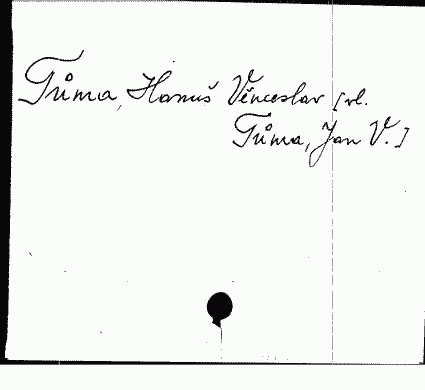 Tůma, Hanuš Věnceslav [vl.
Tůma, Jan V.]